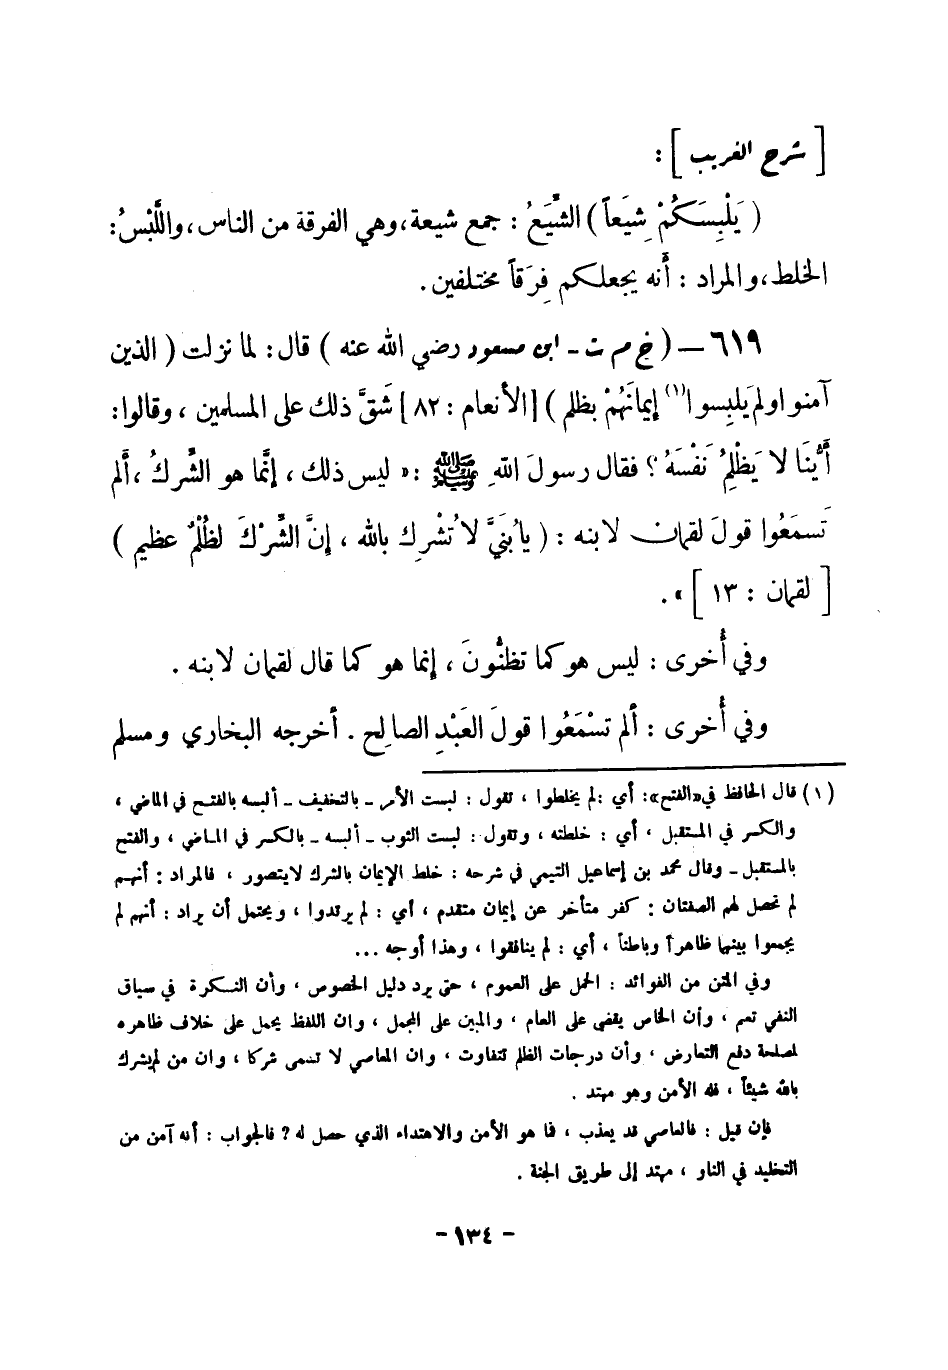 [ شرح الغريب ] :
( يَلْبِسَكُمْ شِيَعاً ) الشِّيَعُ : جمع شيعة، وهي الفرقة من الناس، واللَّبْسُ:
الخلط، والمراد : أنه يجعلكم فِرَقاً مختلفين .
٦١٩ – ( خ م ت - ابن مسعود رضي الله عنه ) قال : لما نزلت ( الذين
آمنوا ولم يَلبِسوا (١) إيمانَهُمْ بظلم ) [ الأنعام : ٨٢ ] شَقَّ ذلك على المسلمين ، وقالوا:
أَيُّنَا لا يَظْلِمُ نَفْسَهُ ؟ فقال رسولَ اللهِ ﷺ : « ليس ذلك ، إنَّما هو الشِّركُ ، ألم
تَسمَعُوا قولَ لقمان لابنه : ( يا بُنَيَّ لا تُشْرِك بالله ، إنَّ الشِّرْكَ لظُلْمٌ عظيم )
[ لقمان : ١٣ ] » .
وفي أُخرى : ليس هو كما تظنُّونَ ، إنما هو كما قال لقمان لابنه .
وفي أُخرى : ألم تسْمَعُوا قولَ العَبْدِ الصالِح . أخرجه البخاري ومسلم
(١) قال الحافظ في «الفتح»: أي : لم يخلطوا ، تقول : لبست الأمر ـ بالتخفيف ـ ألبسه بالفتح في الماضي ،
والكسر في المستقبل ، أي : خلطته ، وتقول : لبست الثوب ـ ألبسه ـ بالكسر في الماضي ، والفتح
بالمستقبل ـ وقال محمد بن إسماعيل التيمي في شرحه : خلط الإيمان بالشرك لا يتصور ، فالمراد : أنهم
لم تحصل لهم الصفتان : كفر متأخر عن إيمان متقدم ، أي : لم يرتدوا ، ويحتمل أن يراد : أنهم لم
يجمعوا بينهما ظاهراً وباطناً ، أي : لم ينافقوا ، وهذا أوجه ...
وفي المتن من الفوائد : الحمل على العموم ، حتى يرد دليل الخصوص ، وأن النكرة في سياق
النفي تعم ، وأن الخاص يقضي على العام ، والمبين على المجمل ، وان اللفظ يحمل على خلاف ظاهره
لمصلحة دفع التعارض ، وأن درجات الظلم تتفاوت ، وان المعاصي لا تسمى شركا ، وان من لم يشرك
بالله شيئاً ، فله الأمن وهو مهتد .
فإن قيل : فالعاصي قد يعذب ، فما هو الأمن والاهتداء الذي حصل له ? فالجواب : أنه آمن من
التخليد في النار ، مهتد إلى طريق الجنة .
- ١٣٤ -